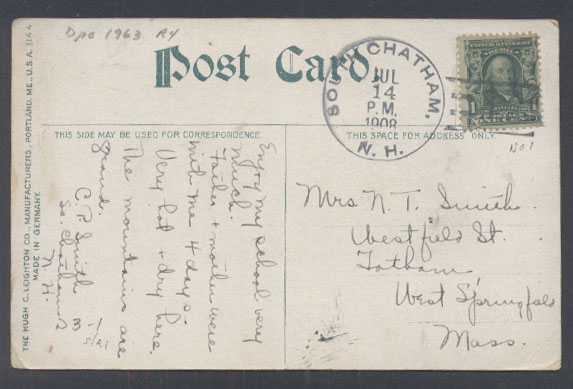 Dpo 1963 RY
Post Card.
SOUTH CHATHAM,
JUL
14
P.M.
1908
N. H.
THIS SIDE MAY BE USED FOR CORRESPONDENCE.
THIS SPACE FOR ADDRESS ONLY.
THE HUGH C. LEIGHTON CO., MANUFACTURERS, PORTLAND, ME., U.S.A.
MADE IN GERMANY.
Enjoy my school very
much.
Father & mother were
with me 4 days.
Very hot & dry here.
The mountains are
grand.
C. P. Smith
So. Chatham
N. H.
3-1
Mrs. N. T. Smith
Westfield St.
Tatham
West Springfield
Mass.